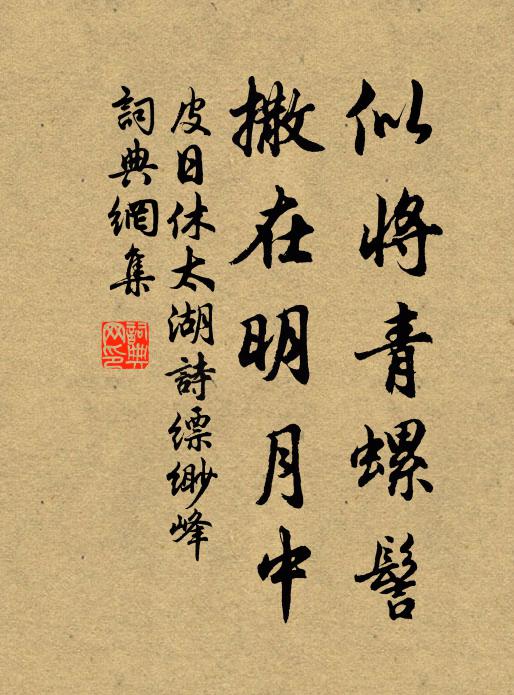 似將青螺髻
撒在明月中
皮日休太湖詩縹緲峰
詞典網集
詞典网印